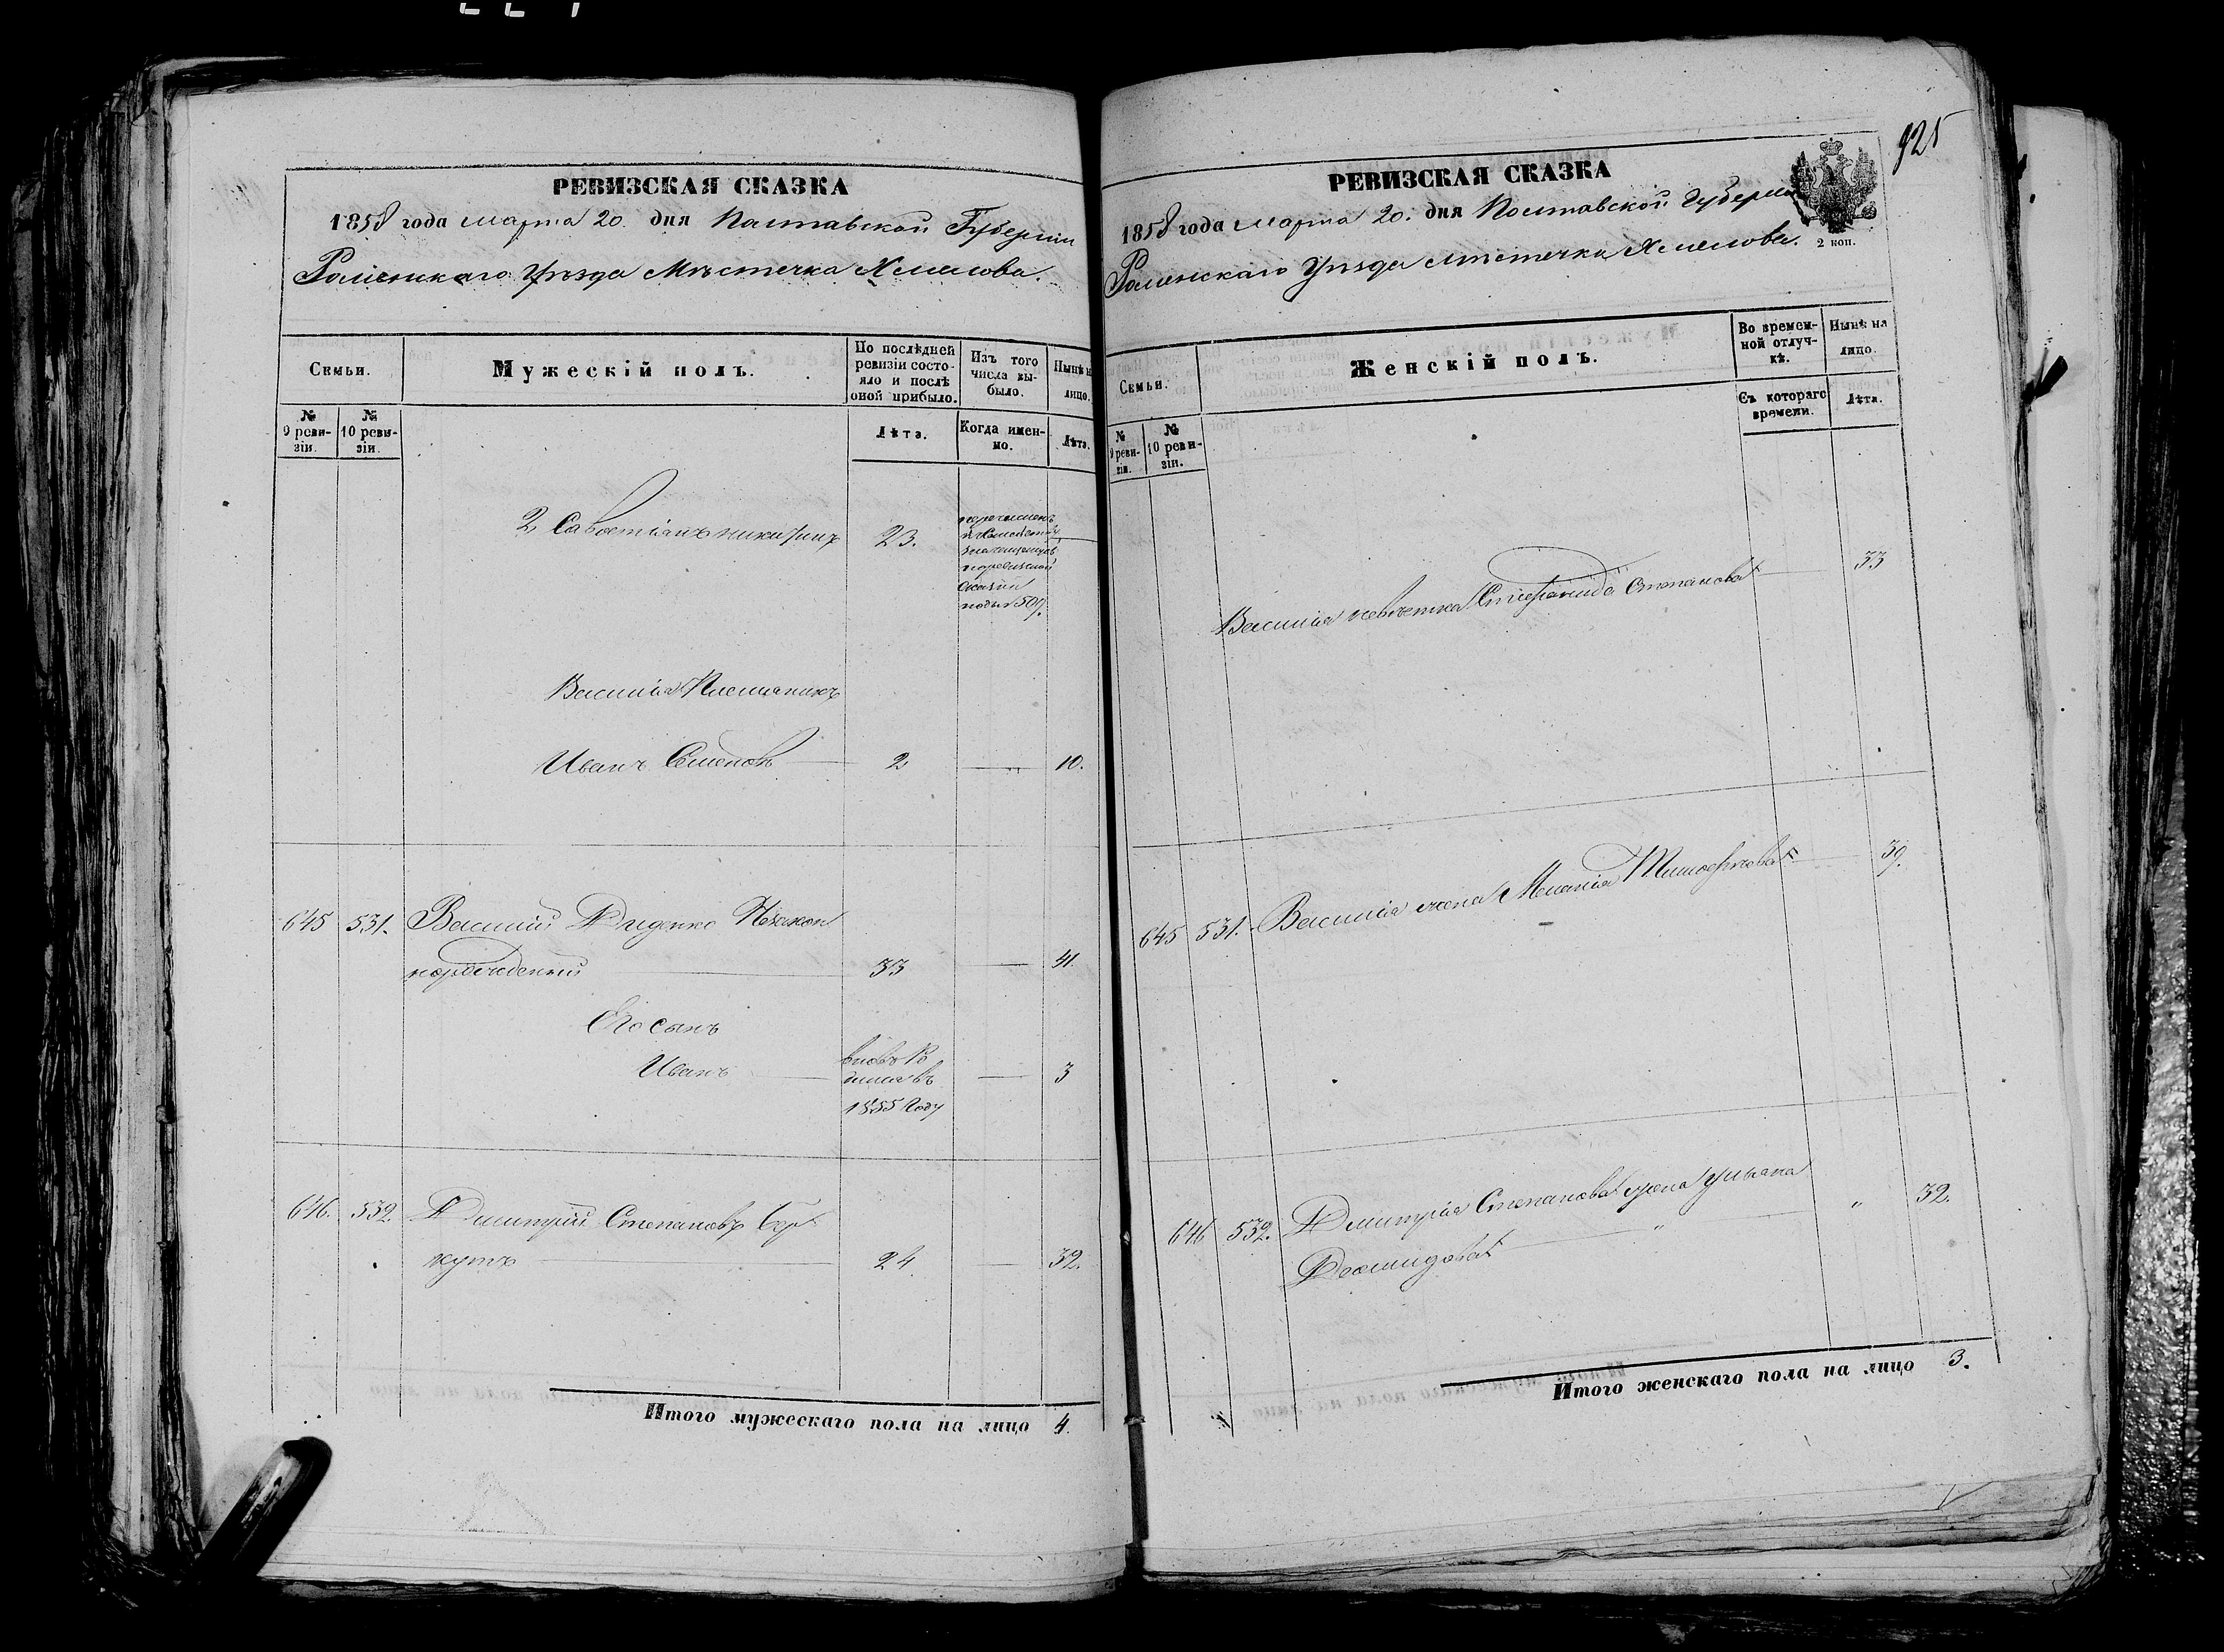 РЕВИЗСКАЯ СКАЗКА
1858 года марта 20. дня Полтавской Губернии
Роменскаго Уѣзда Мѣстечка Хмелова.
Семьи.
Мужескій полъ.
По послѣдней ревизіи состояло и послѣ оной прибыло.
Изъ того числа выбыло.
Нынѣ на лицо.
№ 9 ревизіи.
№ 10 ревизіи.
Лѣта.
Когда именно.
Лѣта.
2, Савостіанъ Никитинъ 23.
сказки
подъ № 509.
Василія Племянникъ
Иванъ Семеновъ 2 10.
645 531. Василій Диденко
33 41.
Его сынъ
Иванъ 3
1855 году
646. 532. Дмитрій Степановъ Бер
кутъ 24 32.
Итого мужескаго пола на лицо 4.
925
РЕВИЗСКАЯ СКАЗКА
2 коп.
1858 года марта 20. дня Полтавской Губерніи
Роменскаго Уѣзда Мѣстечка Хмелова.
Семьи.
Женскій полъ.
Во временной отлучкѣ.
Нынѣ на лицо.
№ 9 ревизіи.
№ 10 ревизіи.
Съ котораго времени.
Лѣта.
Василія невѣстка Степанида Степанова 33
645 531. Василія жена Меланія Тимофѣева 39.
646 532. Дмитрія Степанова жена Ульяна " 32.
Демидова "
Итого женскаго пола на лицо 3.